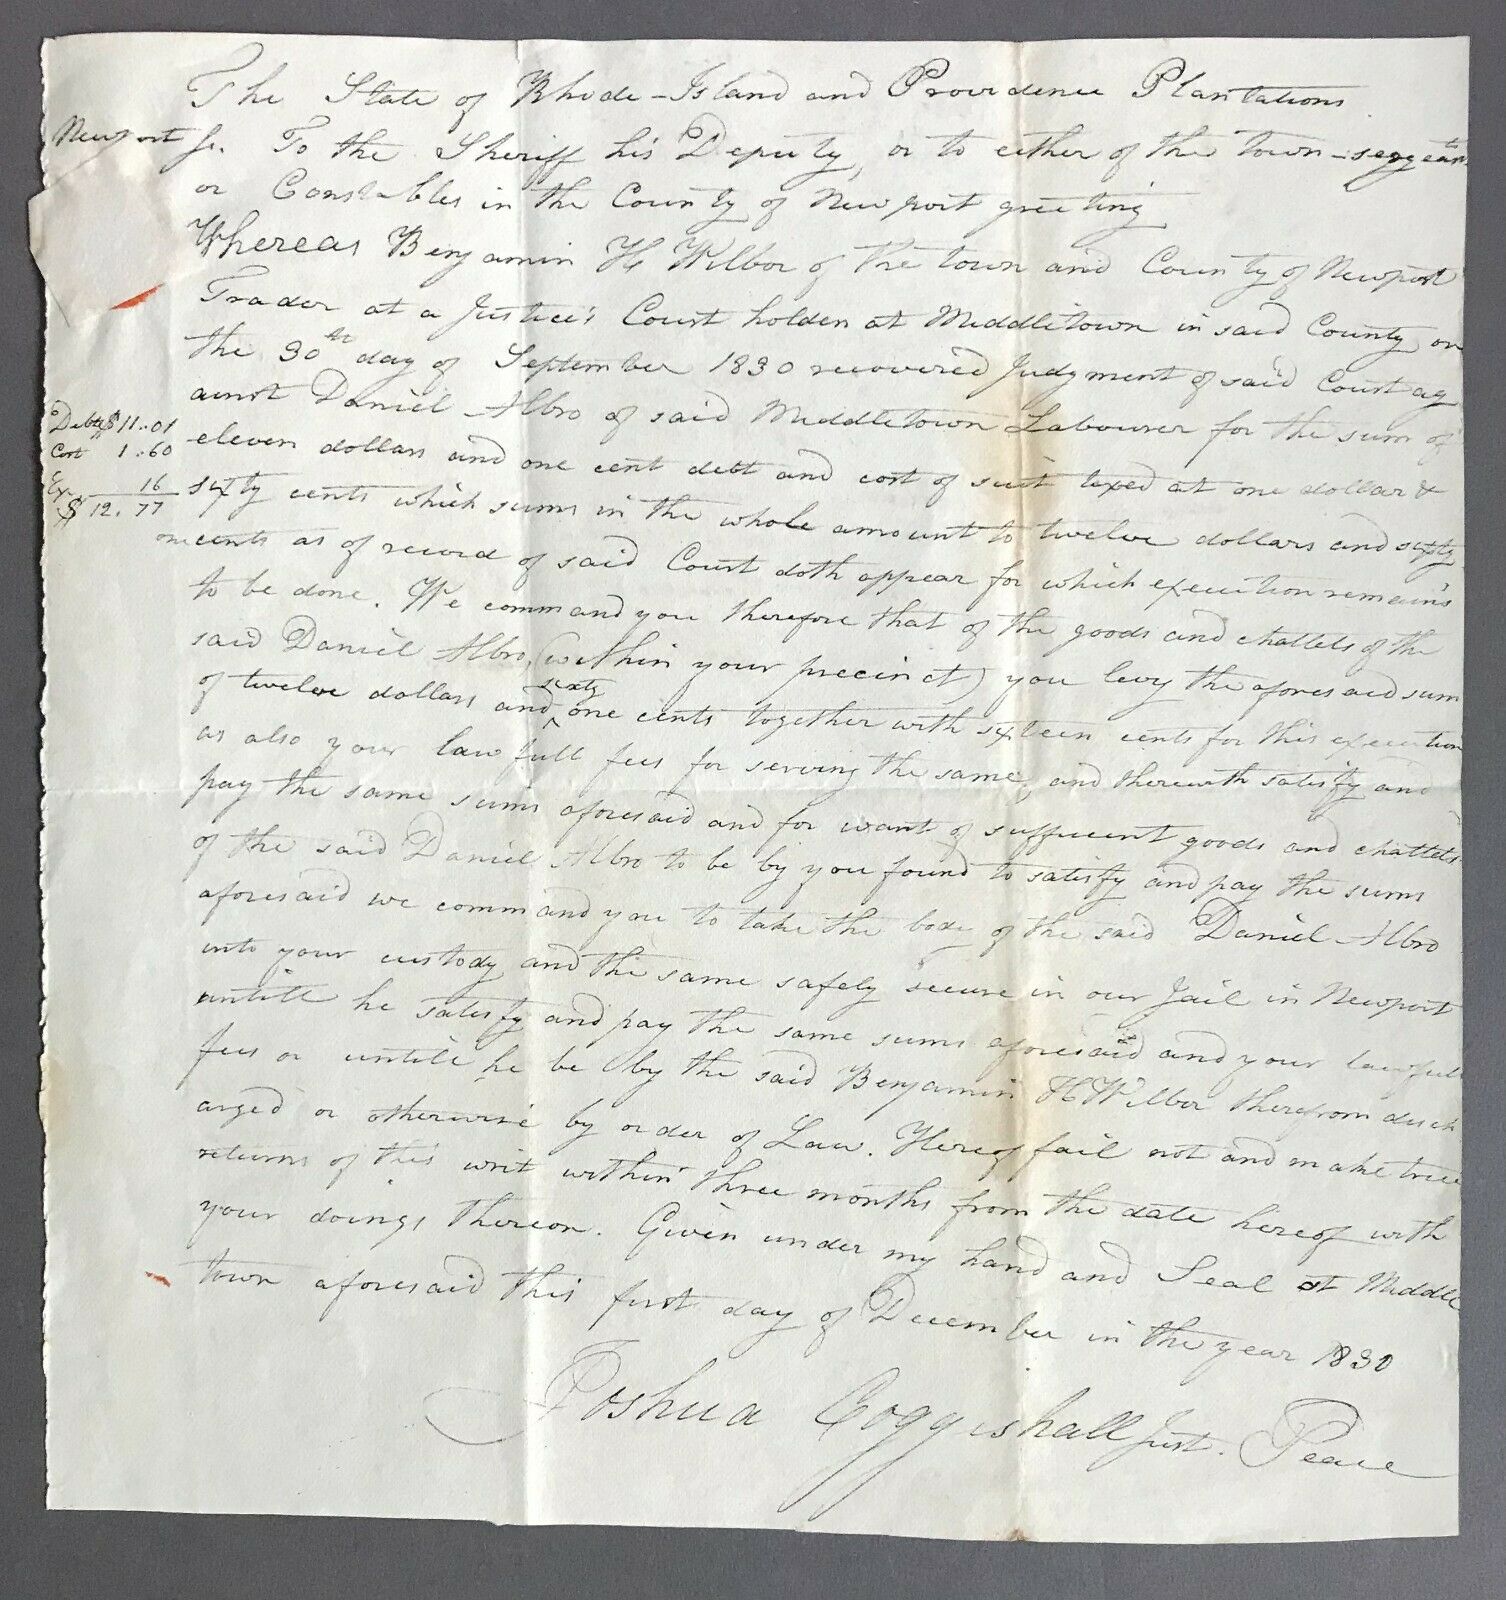 The State of Rhode-Island and Providence Plantations
Newport Sc. To the Sheriff his Deputy, or to either of the town-sergeants
or Constables in the County of Newport greeting
Whereas Benjamin H Wilbor of the town and County of Newport
Trader at a Justice's Court holden at Middletown in said County on
the 30th day of September 1830 recovered Judgment of said Court ag
ainst Daniel Albro of said Middletown Labourer for the sum of
Debt $ 11.01
eleven dollars and one cent debt and cost of suit taxed at one dollar &
Cost 1.60
sixty cents which sums in the whole amount to twelve dollars and sixty
Ex. 16
$ 12.77
one cents as of record of said Court doth appear for which execution remains
to be done. We command you therefore that of the goods and chattels of the
said Daniel Albro, (within your precinct) you levy the aforesaid sum
of twelve dollars and sixty one cents together with sixteen cents for this execution
as also your lawfull fees for serving the same, and therewith satisfy and
pay the same sums aforesaid and for want of suffucent goods and chattels
of the said Daniel Albro to be by you found to satisfy and pay the sums
aforesaid we command you to take the body of the said Daniel Albro
into your custody and the same safely secure in our Jail in Newport
untill he satisfy and pay the same sums aforesaid and your lawfull
fees or untill he be by the said Benjamin H Wilbor therefrom disch
arged or otherwise by order of Law. Hereof fail not and make true
returns of this writ within three months from the date hereof with
your doings thereon. Given under my hand and Seal at Middle
town aforesaid this first day of December in the year 1830
Joshua Coggeshall Just. Peace